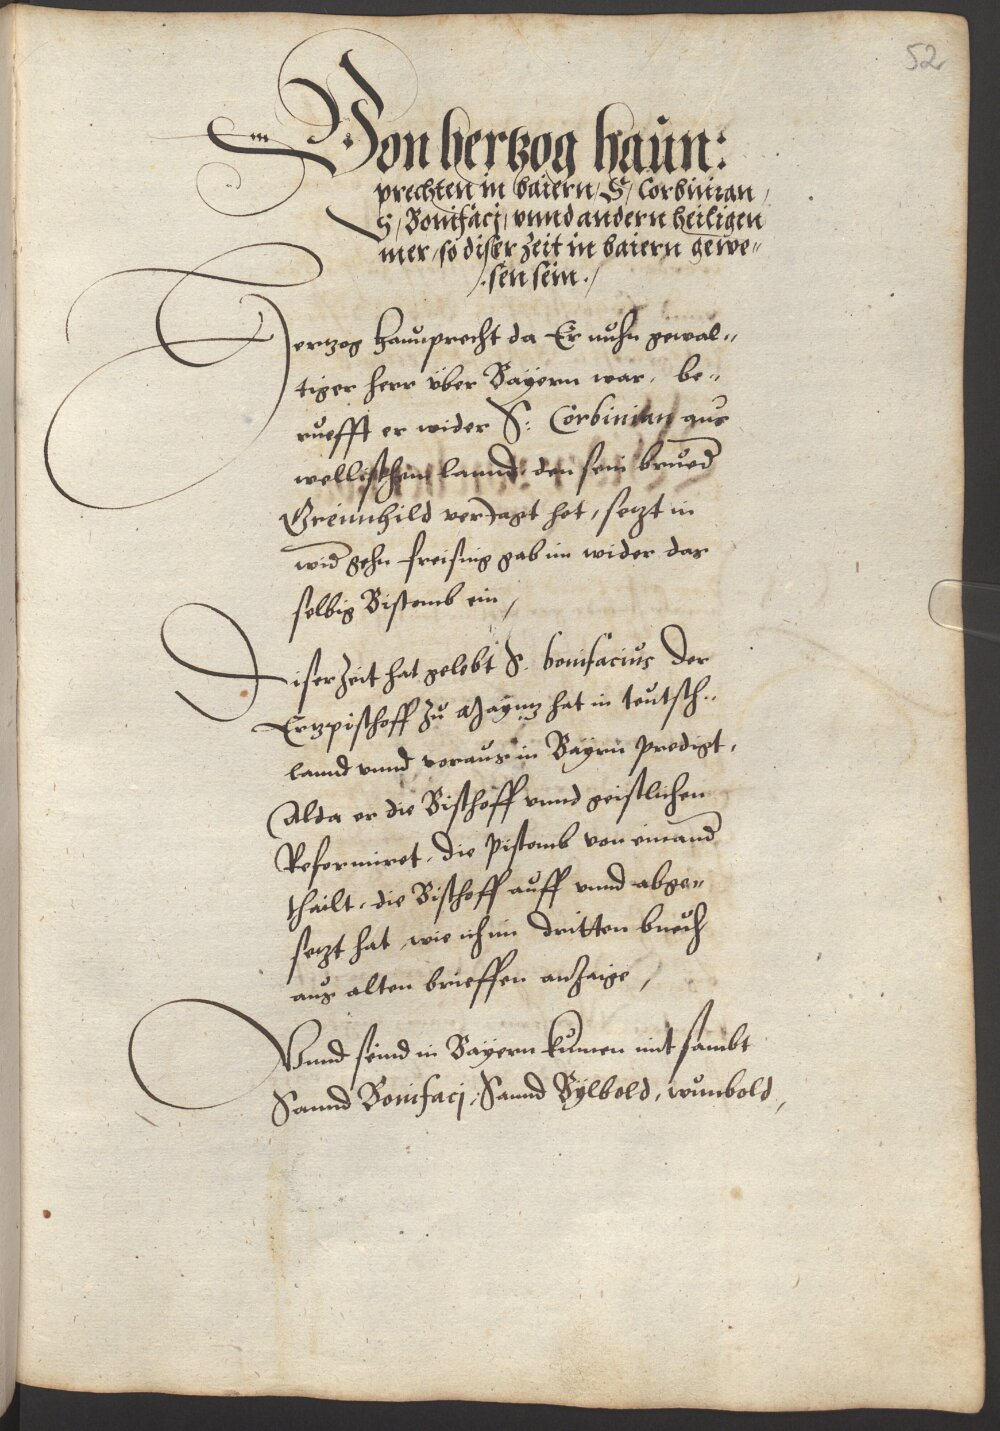 52
Von hertzog haun:
prechten in baiern / S / Corbinian /
S / Bonifacj / vnnd andern heiligen
mer / so diser zeit in baiern gewe"
/. sen sein . /
Hertzog Haunprecht da Er nuhn gewal"
tiger herr über Bayern war, be"
ruefft er wider S: Corbinian aus
wellischem lannd, den sein brued
Grimhild verJagt het, setzt in
wid gehn freising gab im wider das
selbig Bistomb ein /
Diser Zeit hat gelebt S. bonifacius Der
Ertzpischoff Zu Maÿntz hat in teutsch"
lannd vnnd voraus in Bayrn predigt,
Alda er die Bischoff vnnd geistlichen
Reformiret, die Pistomb von einand
thailt, die Bischoff auff vnnd abge"
setzt hat, wie ich im dritten buech
aus alten brieffen anZaige /
Vnnd seind in Bayern kumen mit sambt
Sannd Bonifacj, Sannd Bylbold, wunbold,